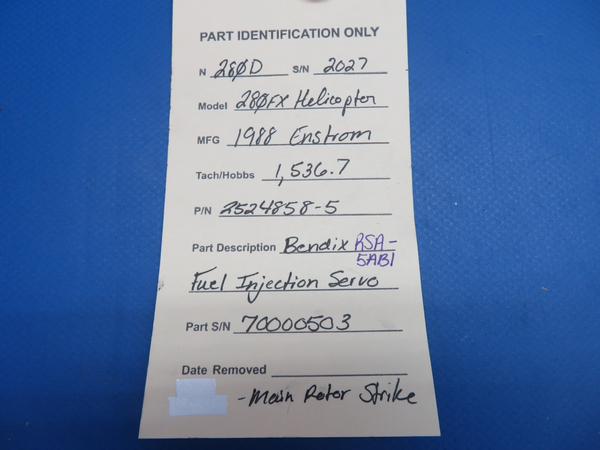 PART IDENTIFICATION ONLY
N 280D S/N 2027
Model 280FX Helicopter
MFG 1988 Enstrom
Tach/Hobbs 1,536.7
P/N 2524858-5
Part Description Bendix RSA-
5AB1
Fuel Injection Servo
Part S/N 70000503
Date Removed
-Main Rotor Strike